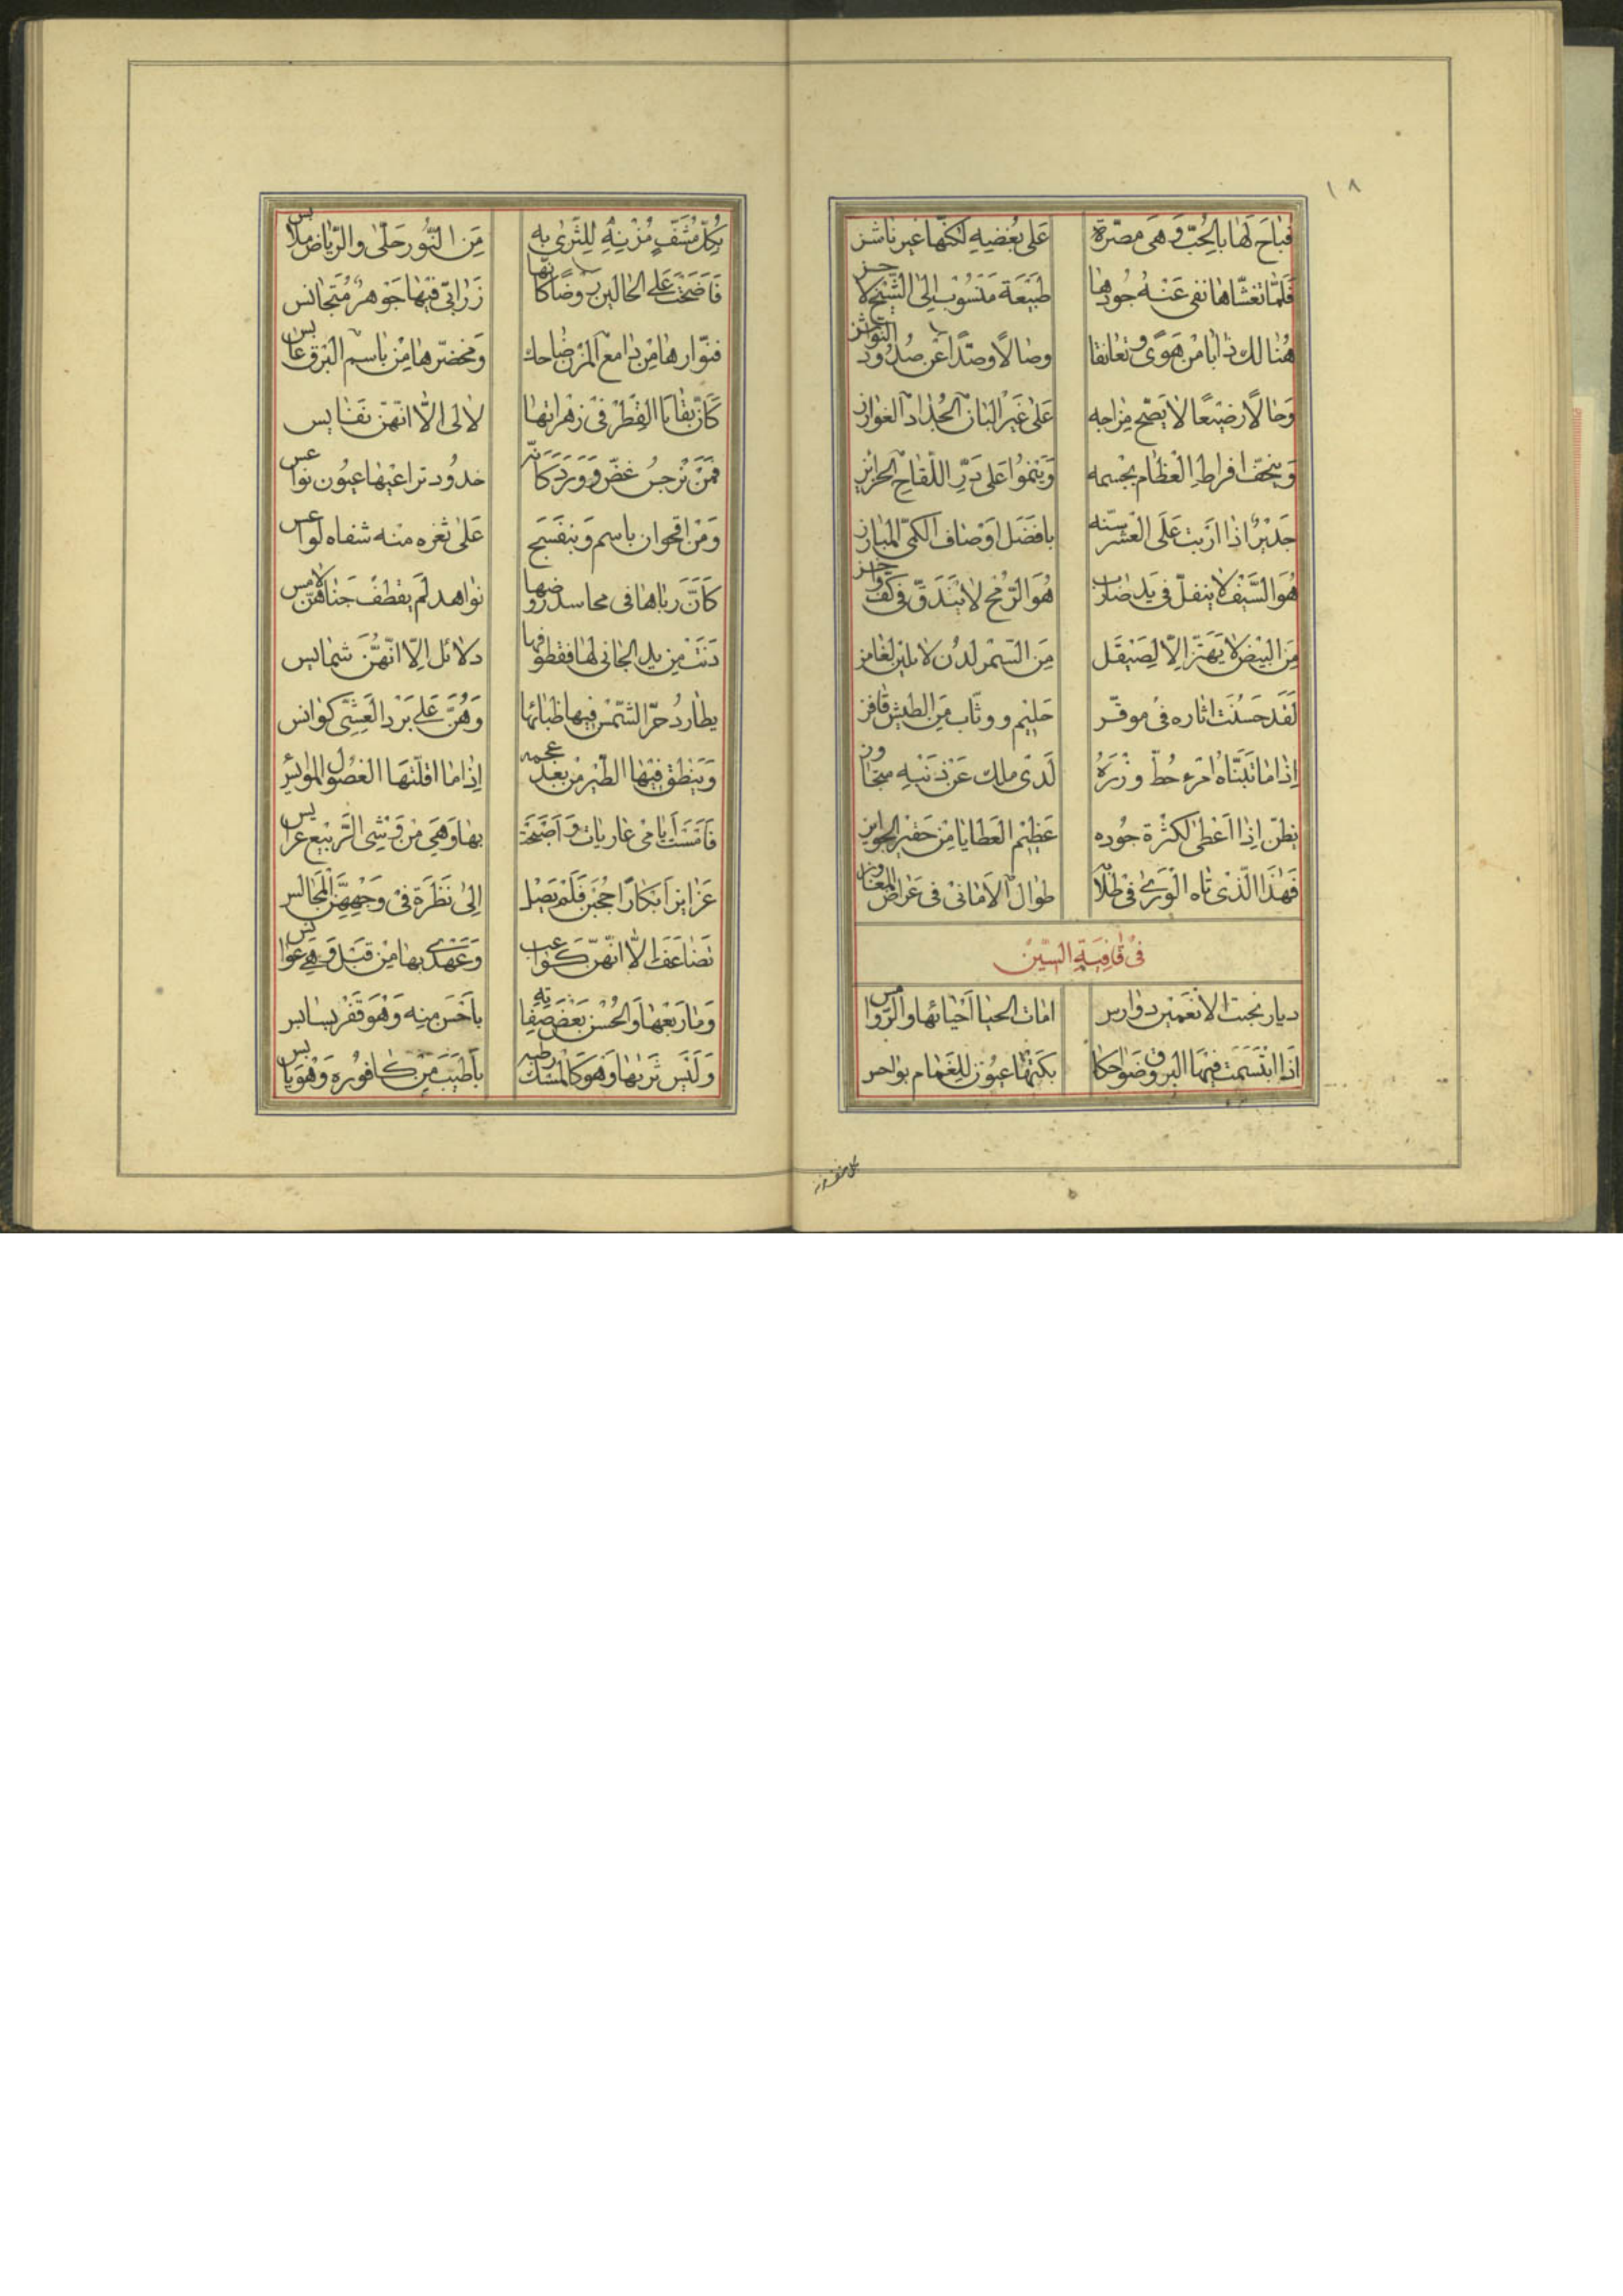 ١٨
فَبَاحَ لَهَا بِالْحُبِّ وَهِىَ مصّرة عَلى بُغْضِيهِ لَكنّها غير ناشز
فَلَمّا تغشّاها نفى عَنْهُ جُودها طَبيْعَة مَنْسُوْب اِلىَ الشّيْحِ لاجز
هُنالك ذابا مِنْ هَوًى وتعانقا وصالًا وصدًّا عَن صُدُود النَوَاشز
وَحالًا رضيْعًا لا يَصْح مِزاجه عَلى غَيْر البَان الجداد الغوارز
بِجْسمه وَيَنْموُا عَلى دَرّ اللّقاح الحرائز
جَديْرٌ اذا ارَبت عَلَى الْعَشر سِنّه بافْضَل اَوْصاف الكمىّ المبارز
هُوَ السَّيْف لا ينفلّ فى يَد ضارب هُوَ الرُّمْح لا يَنْدَقّ فى كفّ واخز
مِنَ البِيْض لا يَهتَزّ اِلّا لِصَيْقَل مِنَ السّمْر لَدُن لا يلين لغامز
لَقَد حَسُنَت اثاره فى موقّر حَليْم ووثّاب مِنَ الطيش قافز
اِذا ما تَبَنّاهُ امْرء حُطّ وِزْرَهُ لَدى ملك عَنْ ذَنْبهِ متجاوز
يظنّ اِذا اَعْطى لكثرة جُوده عَظيْم العَطايا مِنْ حَقير الجوايز
فَهٰذَا الَّذْى تاه الْوَرىٰ فى طلابه طوال الامانىْ فى عَراض المفاوز
فىْ قافِيَةِ السّيْن
ديار نجبت الانعمين دوارس امات الحيا اَحْيائها والرّوامس
اذا ابْتَسَمَت فيْهَا البروق ضَواحكا بكتها عيُون للِغَمام بواجس
بِكُلِّ مُشَفٍّ مُزْنِهِ لِلثَرى به مِن النَّوْر حَلْىٌ والرّياض ملابس
فَاَضْحَتْ عَلى الحالين روضًا كانّها زَرابىّ فيْهَا جَوهرٌ مُتَجانس
فنوّارها مِنْ دامع المزن ضاحك وَمخضرّها مِنْ باسم البَرْق عابس
كَاَنّ بَقايا القطرْ فى زهراتها لالى الّا انّهنّ نَفايس
فمَنْ نَرْجسُ غضّ ووَرْد كانّه خدُود تراعيْها عيُون نواعس
وَمَنْ اقحوان باسم وَبنفسَج عَلىٰ ثغره منْه شفاه لَواعس
كَاَنَّ رباها فى محاسد رَوضها نواهد لَم يَقطفْ جَناهُنّ لامس
دَنَتْ مِن يد الجانى لها فقطوفها دلائل اِلّا انّهُنَّ شمايس
يطاردُ حرّ الشّمْس فيها ظبائها وَهُنّ عَلى بَرْد العَشِىّ كوانس
وَيَنْطق فيْها الطّيْر مِنْ بعد عجمه اِذا ما اقلّتها الغصُون الموايس
فَاَمْسَتْ اَيامى عاريات وَاَصْبَحت بها وَهِىَ مِنْ وَشْى الرّبيْع عرايس
عَزايز اَبْكارًا حجبْن فَلَمْ يَصْل اِلىٰ نَظْرَة فىْ وَجْهِهِنّ المَجَالس
تَضاعَفَ اِلّا انّهنّ كَواعب وَعَهْدىْ بها مِنْ قَبْل وَهىَ عَوانس
وَما رَبْعُها وَالحُسْن بَعْض صِفاته باَحْسَن مِنه وَهْوَ قَفْر بسابس
وَلَيْس تَربها وَهو كَالمسْك رطبه باَطْيَب مِنْ كافوُره وَهْوَ يابس